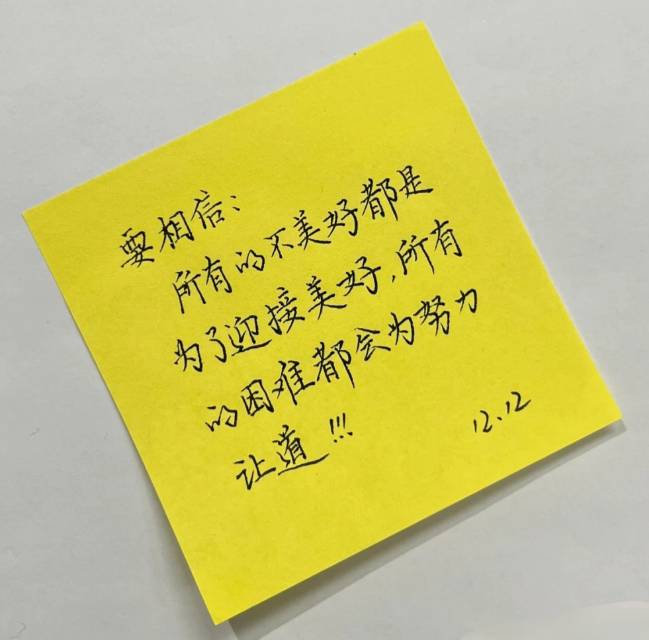 要相信：
所有的不美好都是
为了迎接美好，所有
的困难都会为努力
让道!!!
12.12